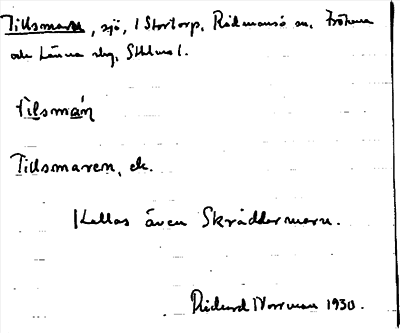 Tillsmaren, sjö, i Stortorp, Rådmansö sn, Frötuna
och Länna skg, Sthlms l.
Tilsmán
Tillsmaren, ek.
Kallas även Skräddarmarn.
Richard Norrman 1930.